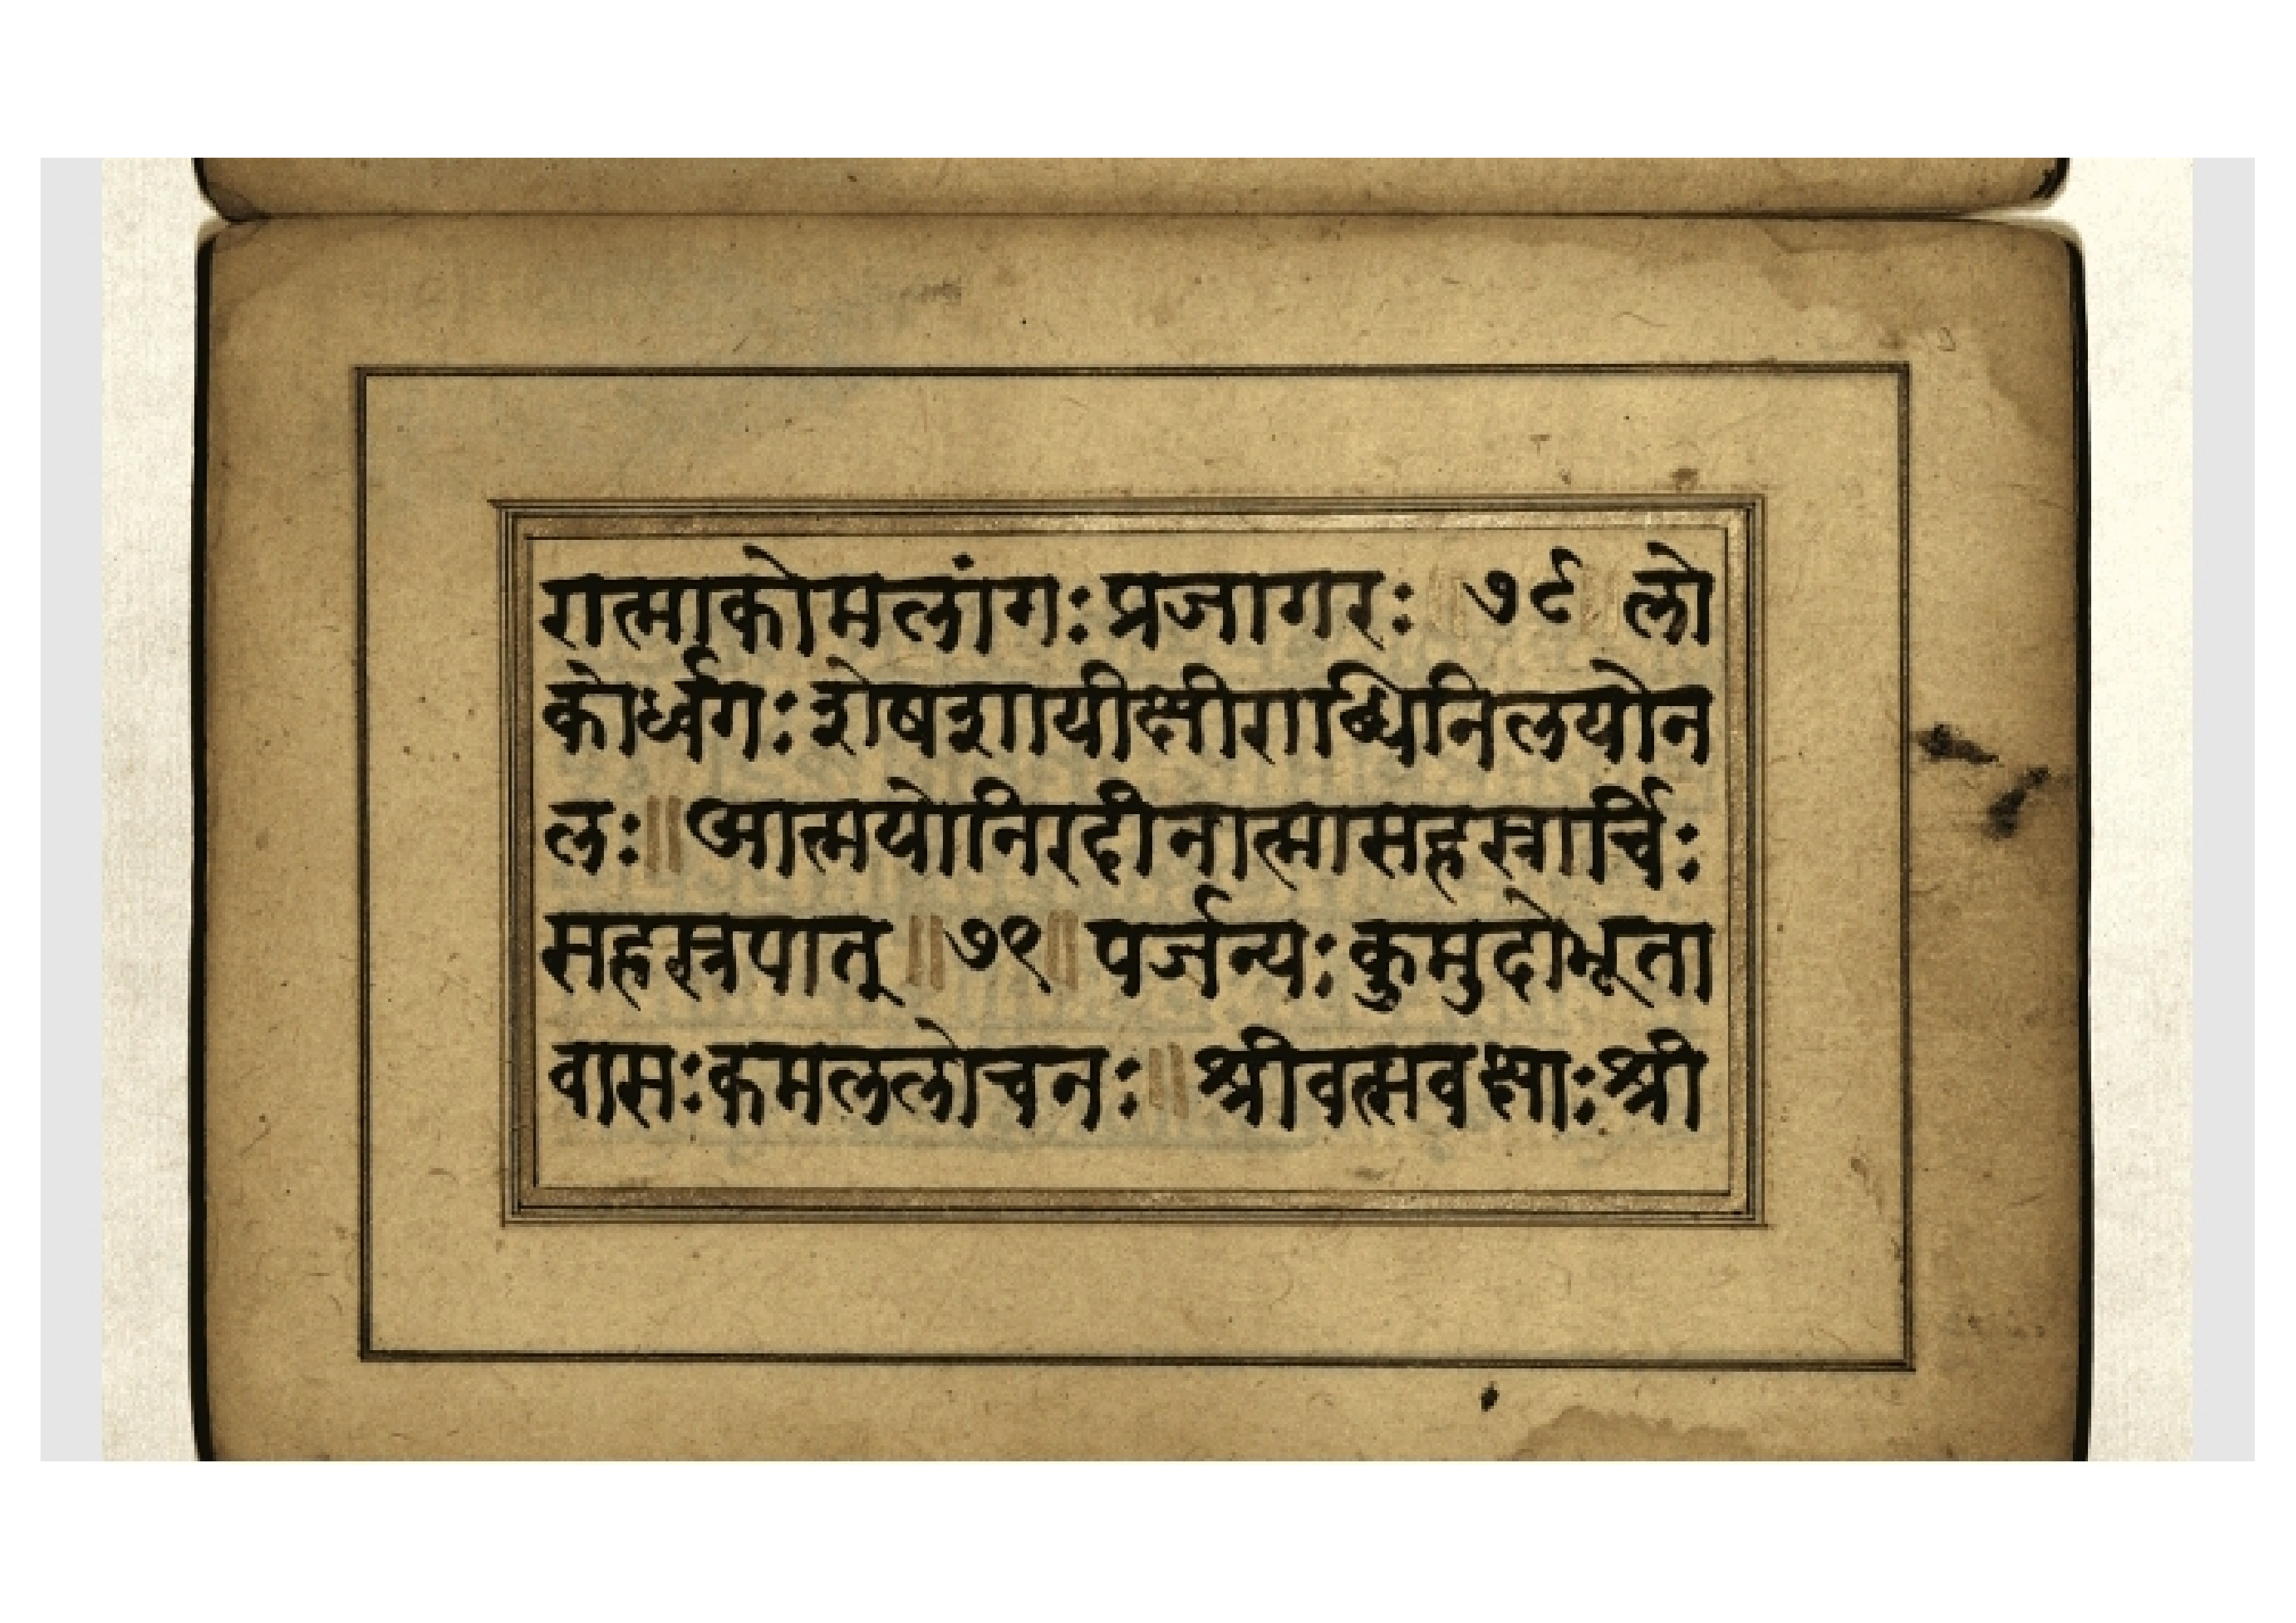 रात्माकोमलांगः प्रजागरः ॥ ७९ ॥ लो
कोर्ध्वगः शेषशायीक्षीराब्धिनिलयोन
लः ॥ आत्मयोनिरदीनात्मासहस्त्रार्चिः
सहस्त्रपात् ॥ ७९ ॥ पर्जन्यः कुमुदोभूता
वासः कमललोचनः ॥ श्रीवत्सवक्षाः श्री